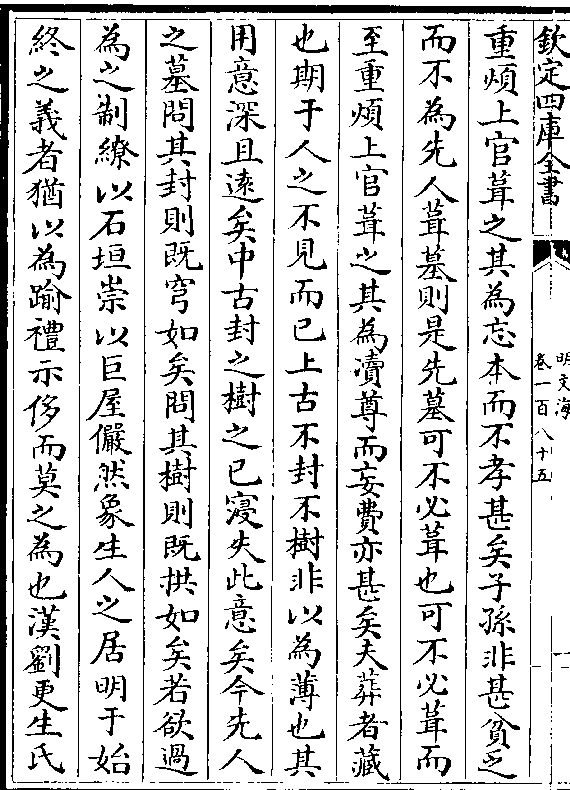 欽定四庫全書
明文海
卷一百八十五
重煩上官葺之其為忘本而不孝甚矣子孫非甚貧乏
而不為先人葺墓則是先墓可不必葺也可不必葺而
至重煩上官葺之其為瀆尊而妄費亦甚矣夫葬者藏
也期于人之不見而已上古不封不樹非以為薄也其
用意深且遠矣中古封之樹之已寖失此意矣今先人
之墓問其封則既穹如矣問其樹則既拱如矣若欲過
為之制繚以石垣崇以巨屋儼然象生人之居明于始
終之義者猶以為踰禮示侈而莫之為也漢劉更生氏